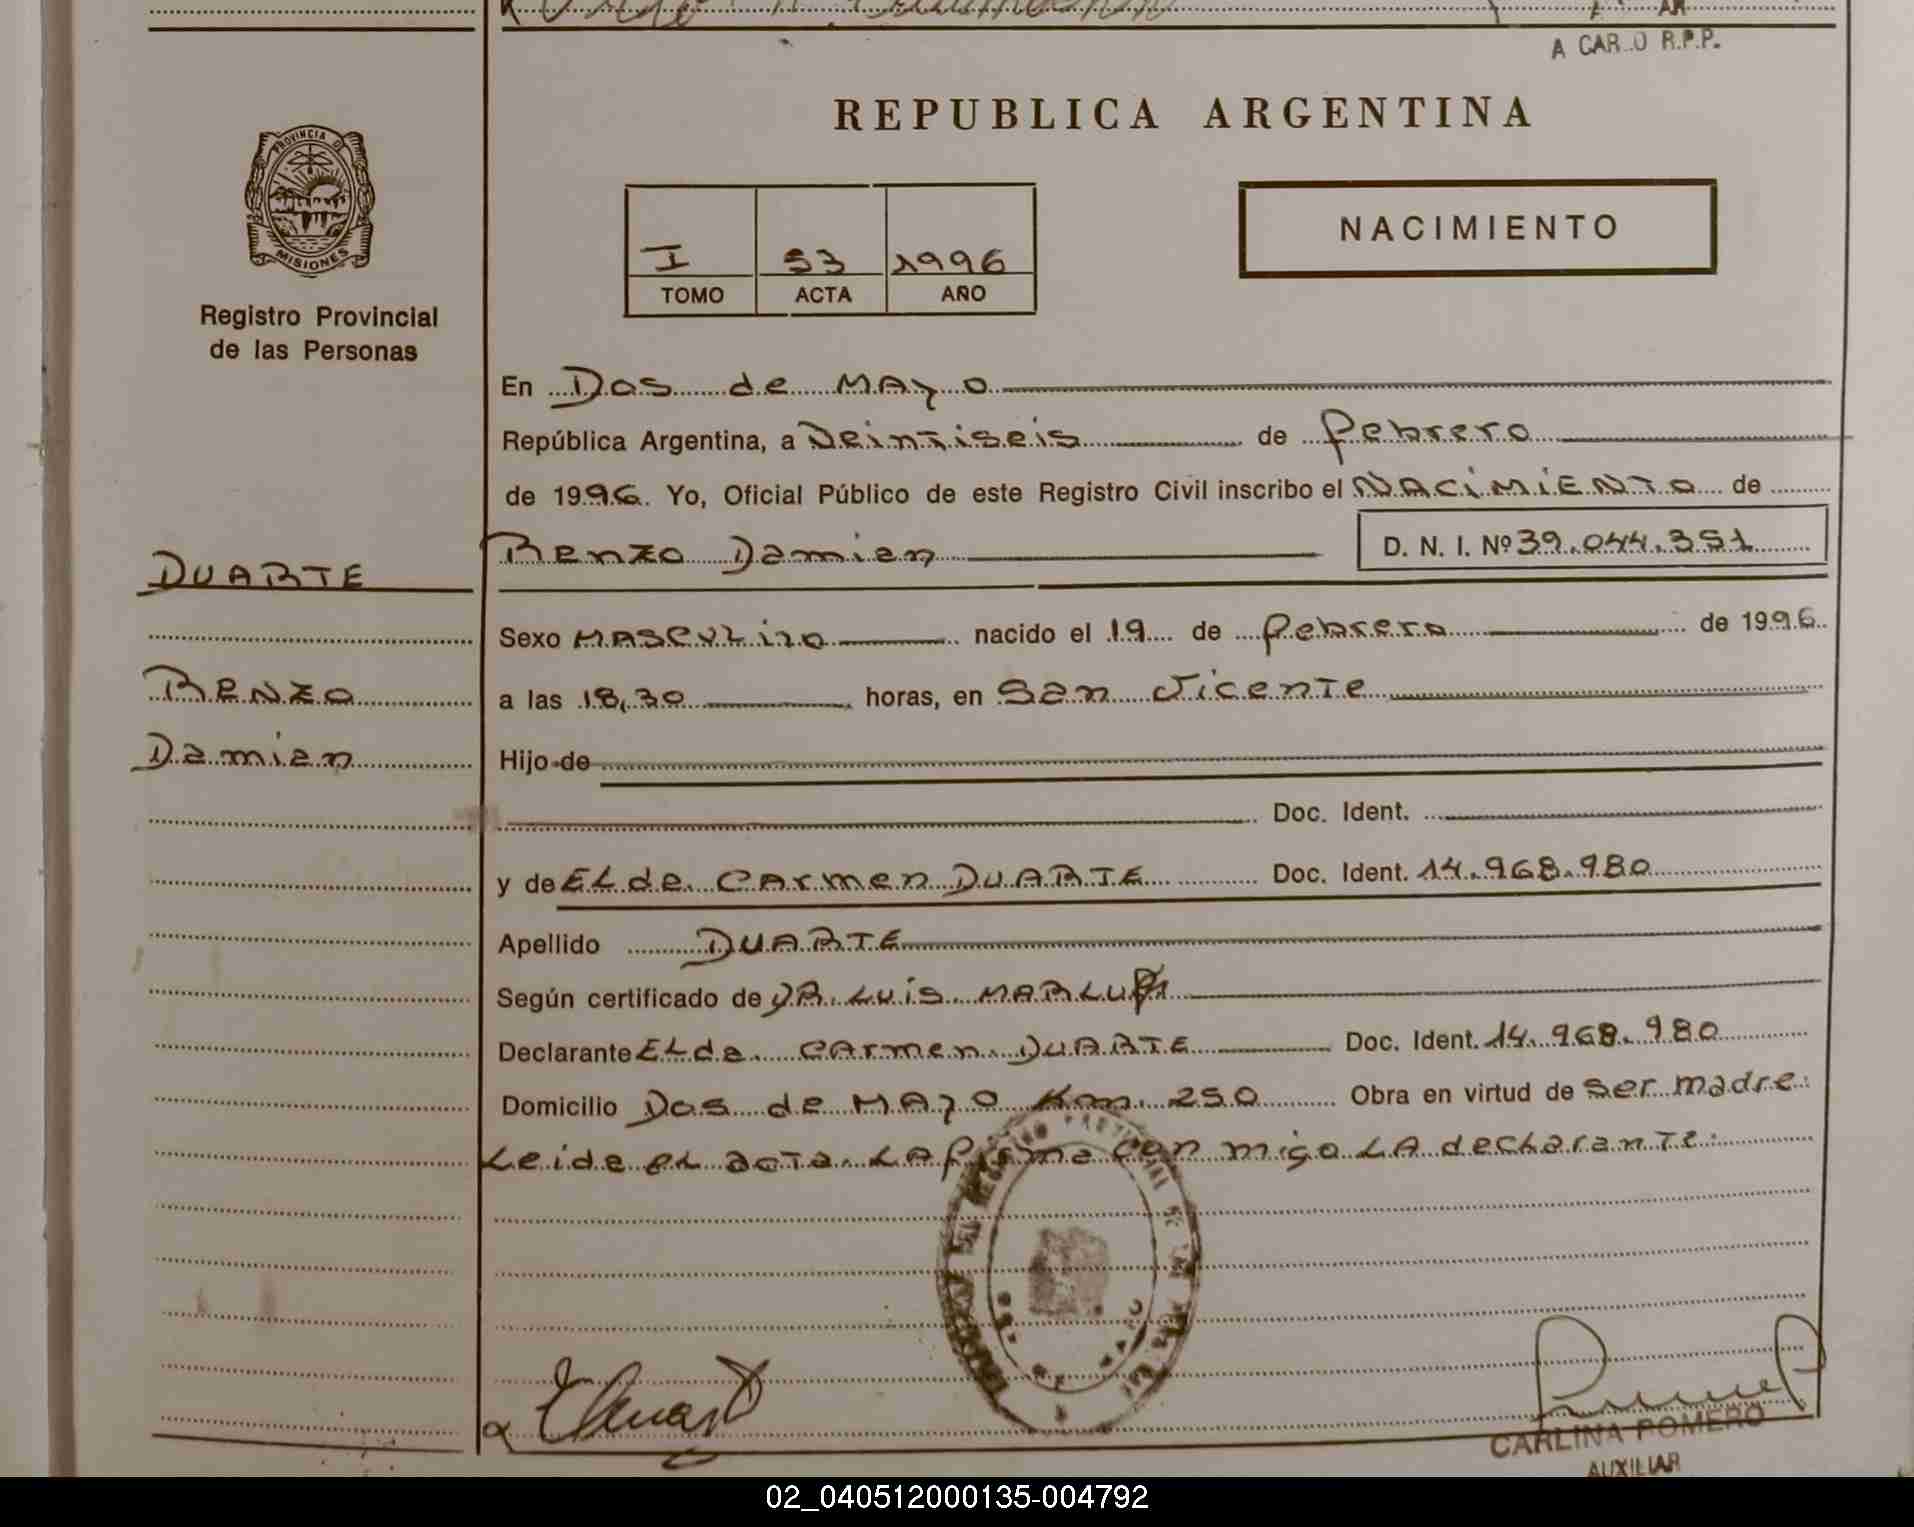 A CAR O R.P.P.
REPUBLICA ARGENTINA
PROVINCIA DE
MISIONES
Registro Provincial
de las Personas
I 53 1996
TOMO ACTA AÑO
NACIMIENTO
En Dos de MAyo
República Argentina, a Veintiseis de febrero
de 1996. Yo, Oficial Público de este Registro Civil inscribo el NACiMiENTO de
DUARTE
Renzo Damian D. N. I. Nº 39.044.351
Sexo MASCULino nacido el 19 de febrero de 1996
RENZO
a las 18,30 horas, en San Vicente
Damian
Hijo de
Doc. Ident.
y de ELda CArmen DUARTE Doc. Ident. 14.968.980
Apellido DUARTE
Según certificado de DR. Luis
Declarante ELda CArmen DUARTE Doc. Ident. 14.968.980
Domicilio Dos de MAyo Km. 250 Obra en virtud de ser madre.
Leida el acta. LA firma con migo LA declarante.
CARLINA ROMERO
AUXILIAR
02_040512000135-004792